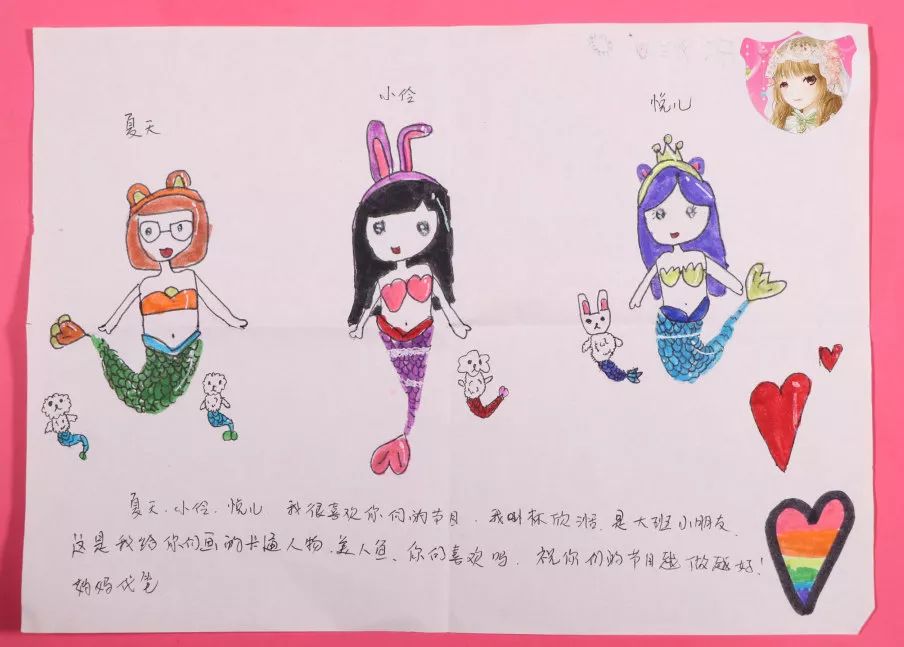 小伶
悦儿
夏天
夏天、小伶、悦儿 我很喜欢你们的节目,我叫林欣 是大班小朋友
这是我给你们画的卡通人物,美人鱼、你们喜欢吗,祝你们的节目越做越好!
妈妈代笔